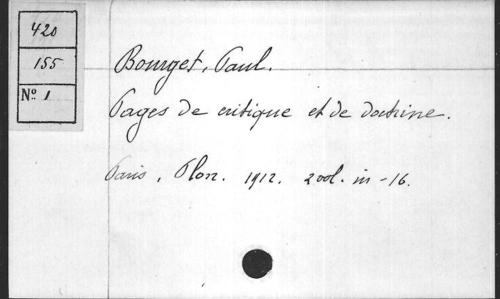 420
155
Nº 1
Bourget, Paul.
Pages de critique et de doctrine.
Paris, Plon. 1912. 2 vol. in-16.